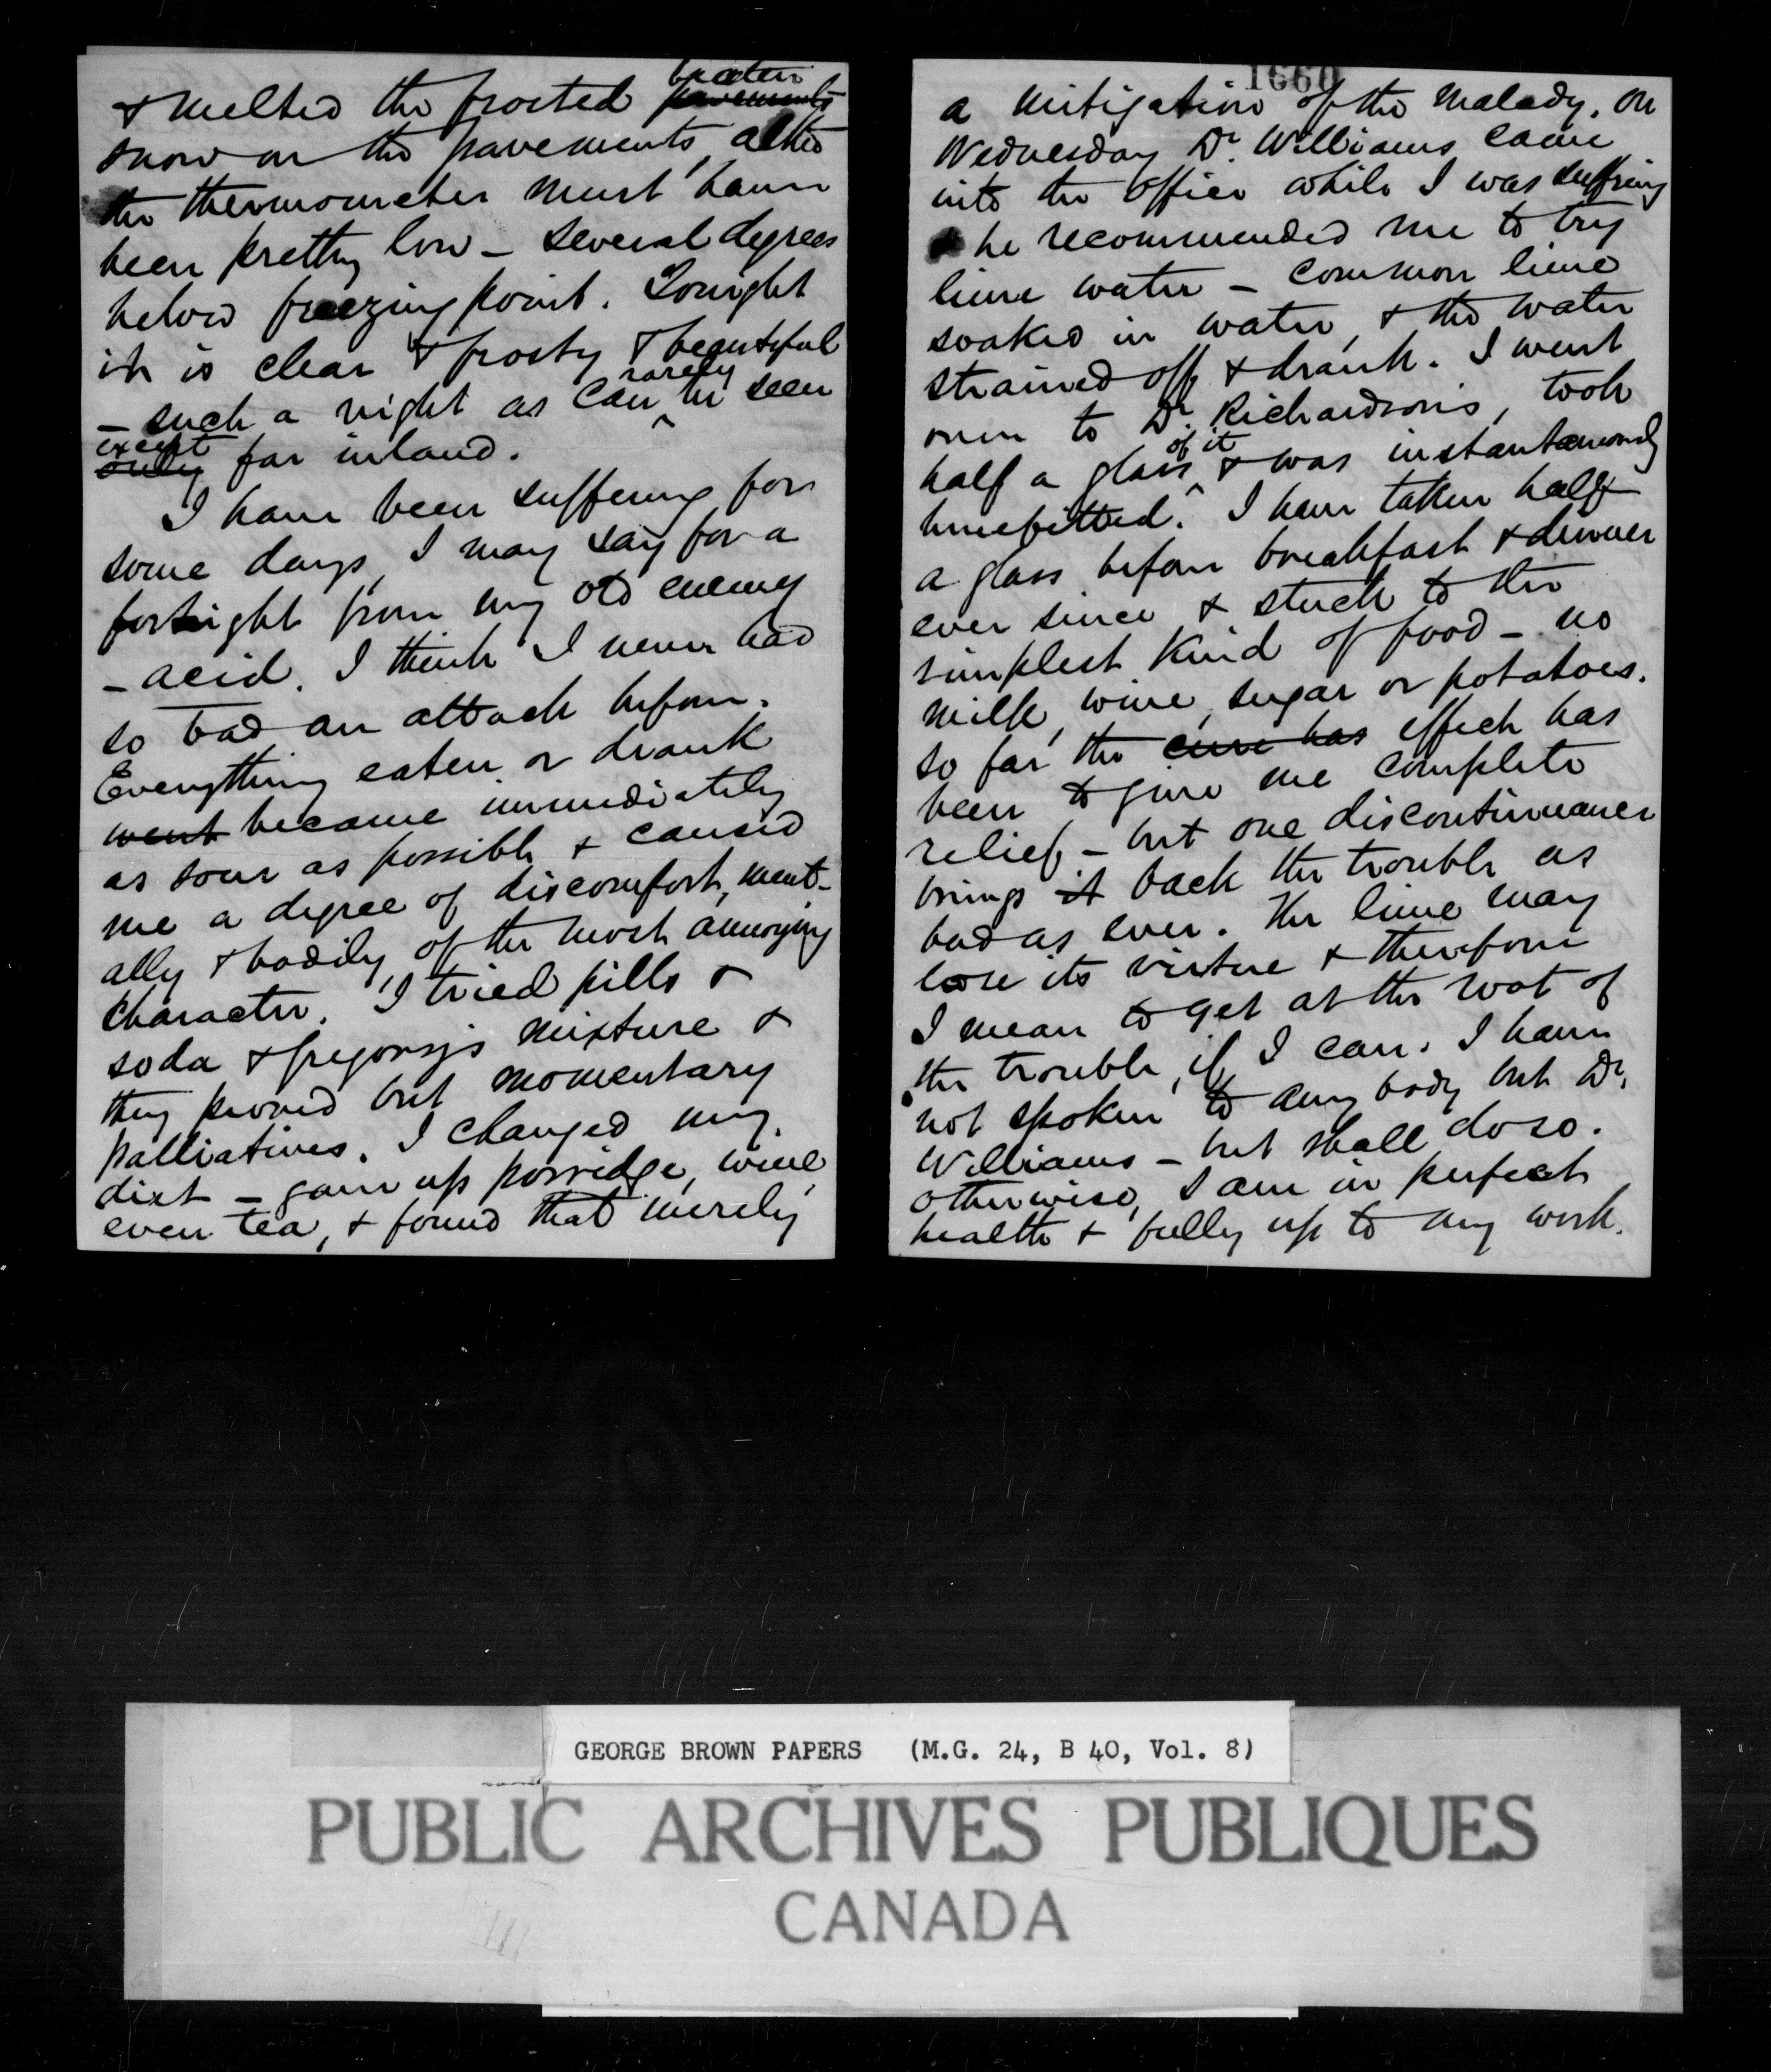 beaten
& melted the frosted pavements
snow on the pavements, altho
the thermometer must have
been pretty low - several degrees
below freezing point. Tonight
it is clear & frosty & beautiful
rarely
- such a night as can be seen
except
only far inland.
I have been suffering for
some days, I may say for a
fortnight from my old enemy
- acid. I think I never had
so bad an attack before.
Everything eaten or drank
went became immediately
as sour as possible & caused
me a degree of discomfort, ment-
ally & bodily, of the most annoying
character. I tried pills &
soda & Gregory's mixture &
they proved but momentary
palliatives. I changed my
diet - gave up porridge, wine,
even tea, & found that merely
1660
a mitigation of the malady. On
Wednesday Dr. Williams came
into the office while I was suffering
& he recommended me to try
lime water - common lime
soaked in water, & the water
strained off & drank. I went
over to Dr. Richardson's, took
of it
half a glass & was instantaneously
benefitted. I have taken half
a glass before breakfast & dinner
ever since & stuck to the
simplest kind of food - no
milk, wine, sugar or potatoes.
So far the cure has effect has
been to give me complete
relief - but one discontinuance
brings it back the trouble as
bad as ever. The lime may
lose its virtue & therefore
I mean to get at the root of
the trouble, if I can. I have
not spoken to any body but Dr.
Williams - but shall do so.
Otherwise, I am in perfect
health & fully up to my work.
GEORGE BROWN PAPERS (M.G. 24, B 40, Vol. 8)
PUBLIC ARCHIVES PUBLIQUES
CANADA